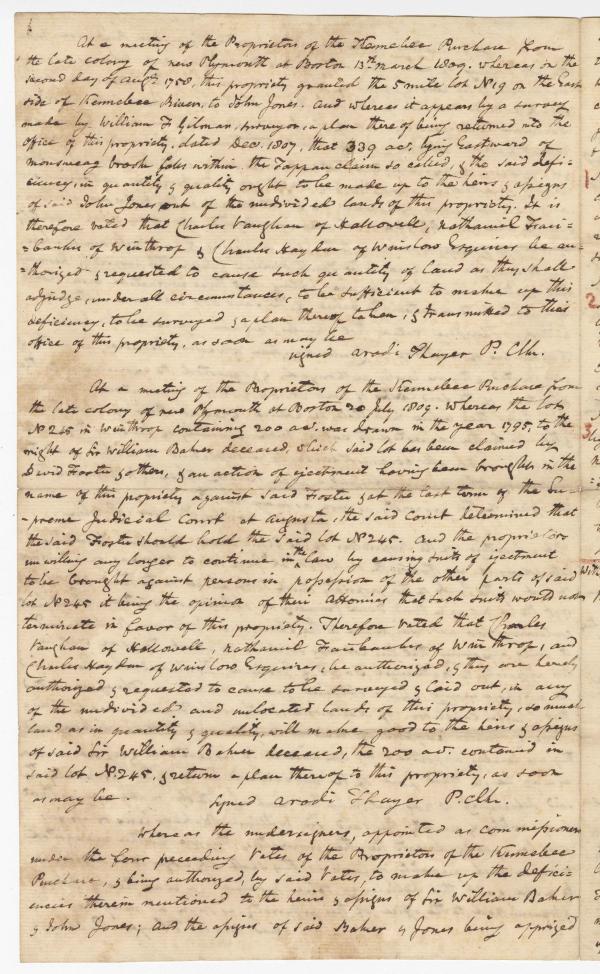 At a meeting of the Proprietors of the Kennebec Purchase from
the late colony of new Plymouth at Boston 13th march 1809. whereas on the
second day of augt. 1758, this propriety granted the 5 mile lot No 19 on the East
side of Kennebec River, to John Jones. and whereas it appears by a survey
made by William F Gilman, surveyor, a plan thereof being returned into the
office of this propriety, dated Decr. 1807, that 339 acs. lying Eastward of
monsweag brook falls within the Tappan claim so called, & the said defi-
ciency, in quantity & quality ought to be made up to the heirs & assigns
of said John Jones out of the undivided lands of this propriety. It is
therefore voted that Charles Vaughan of Hallowell, nathaniel Fair-
=banks of Winthrop & Charles Haydon of Winslow Esquires be au-
=thorized & requested to cause such quantity of land as they shall
adjudge, under all circumstances, to be sufficient to make up this
deficiency, to be surveyed & a plan thereof taken, & transmitted to this
office of this propriety, as soon as may be
signed aradi Thayer P. Clk.
At a meeting of the Proprietors of the Kennebec Purchase from
the late colony of new Plymouth at Boston 20 July 1809. Whereas the lot
No 245 in Winthrop containing 200 acs. was drawn in the year 1795, to the
right of Sir William Baker deceased, which said lot has been claimed by
David Foster & others, & an action of ejectment having been brought in the
name of this propriety against said Foster & at the last term of the Su-
-preme Judicial Court at augusta, the said Court determined that
the said Foster should hold the said lot No 245. and the proprietors
unwilling any longer to continue in the law by causing suits of ejectment
to be brought against persons in possession of the other parts of said
lot No 245 it being the opinion of their attornies that such suits would not
terminate in favor of this propriety. Therefore voted that Charles
Vaughan of Hallowell, nathaniel Fairbanks of Winthrop, and
Charles Haydon of Winslow Esquires, be authorized, & they are hereby
authorized & requested to cause to be surveyed & laid out, in any
of the undivided and unlocated lands of this propriety, so much
land as in quantity & quality, will make good to the heirs & assigns
of said Sir William Baker deceased, the 200 acs. contained in
said lot No. 245, & return a plan thereof to this propriety, as soon
as may be. signed aradi Thayer P. Clk.
Whereas the undersigners, appointed as commissioners
under the four preceeding Votes of the Proprietors of the Kennebec
Purchase, & being authorized, by said Votes, to make up the defici-
encies therein mentioned to the heirs & assigns of Sir William Baker
& John Jones; and the assigns of said Baker & Jones being apprized